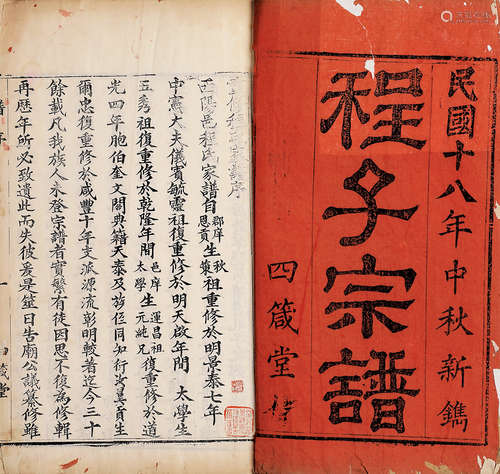 民國十八年中秋新鐫
程子宗譜
四箴堂
酉陽邑程氏家譜自郡庠生秋
思貢策祖重修於明景泰七年
中憲大夫儀賓毓靈祖復重修於明天啟年間 太學生
五秀祖復重修於乾隆年間 邑庠生運昌祖
太學生元純兄復重修於道
光四年胞伯奎文閣典籍天泰及族侄同如衍
爾忠復重修於咸豐十年支派源流彰明較著迄今三十
餘載凡我族人未登宗譜者實繁有徒因思不復為修輯
再歷年所必致遺此而失彼爰是筮日告廟公議纂修雖
四箴堂